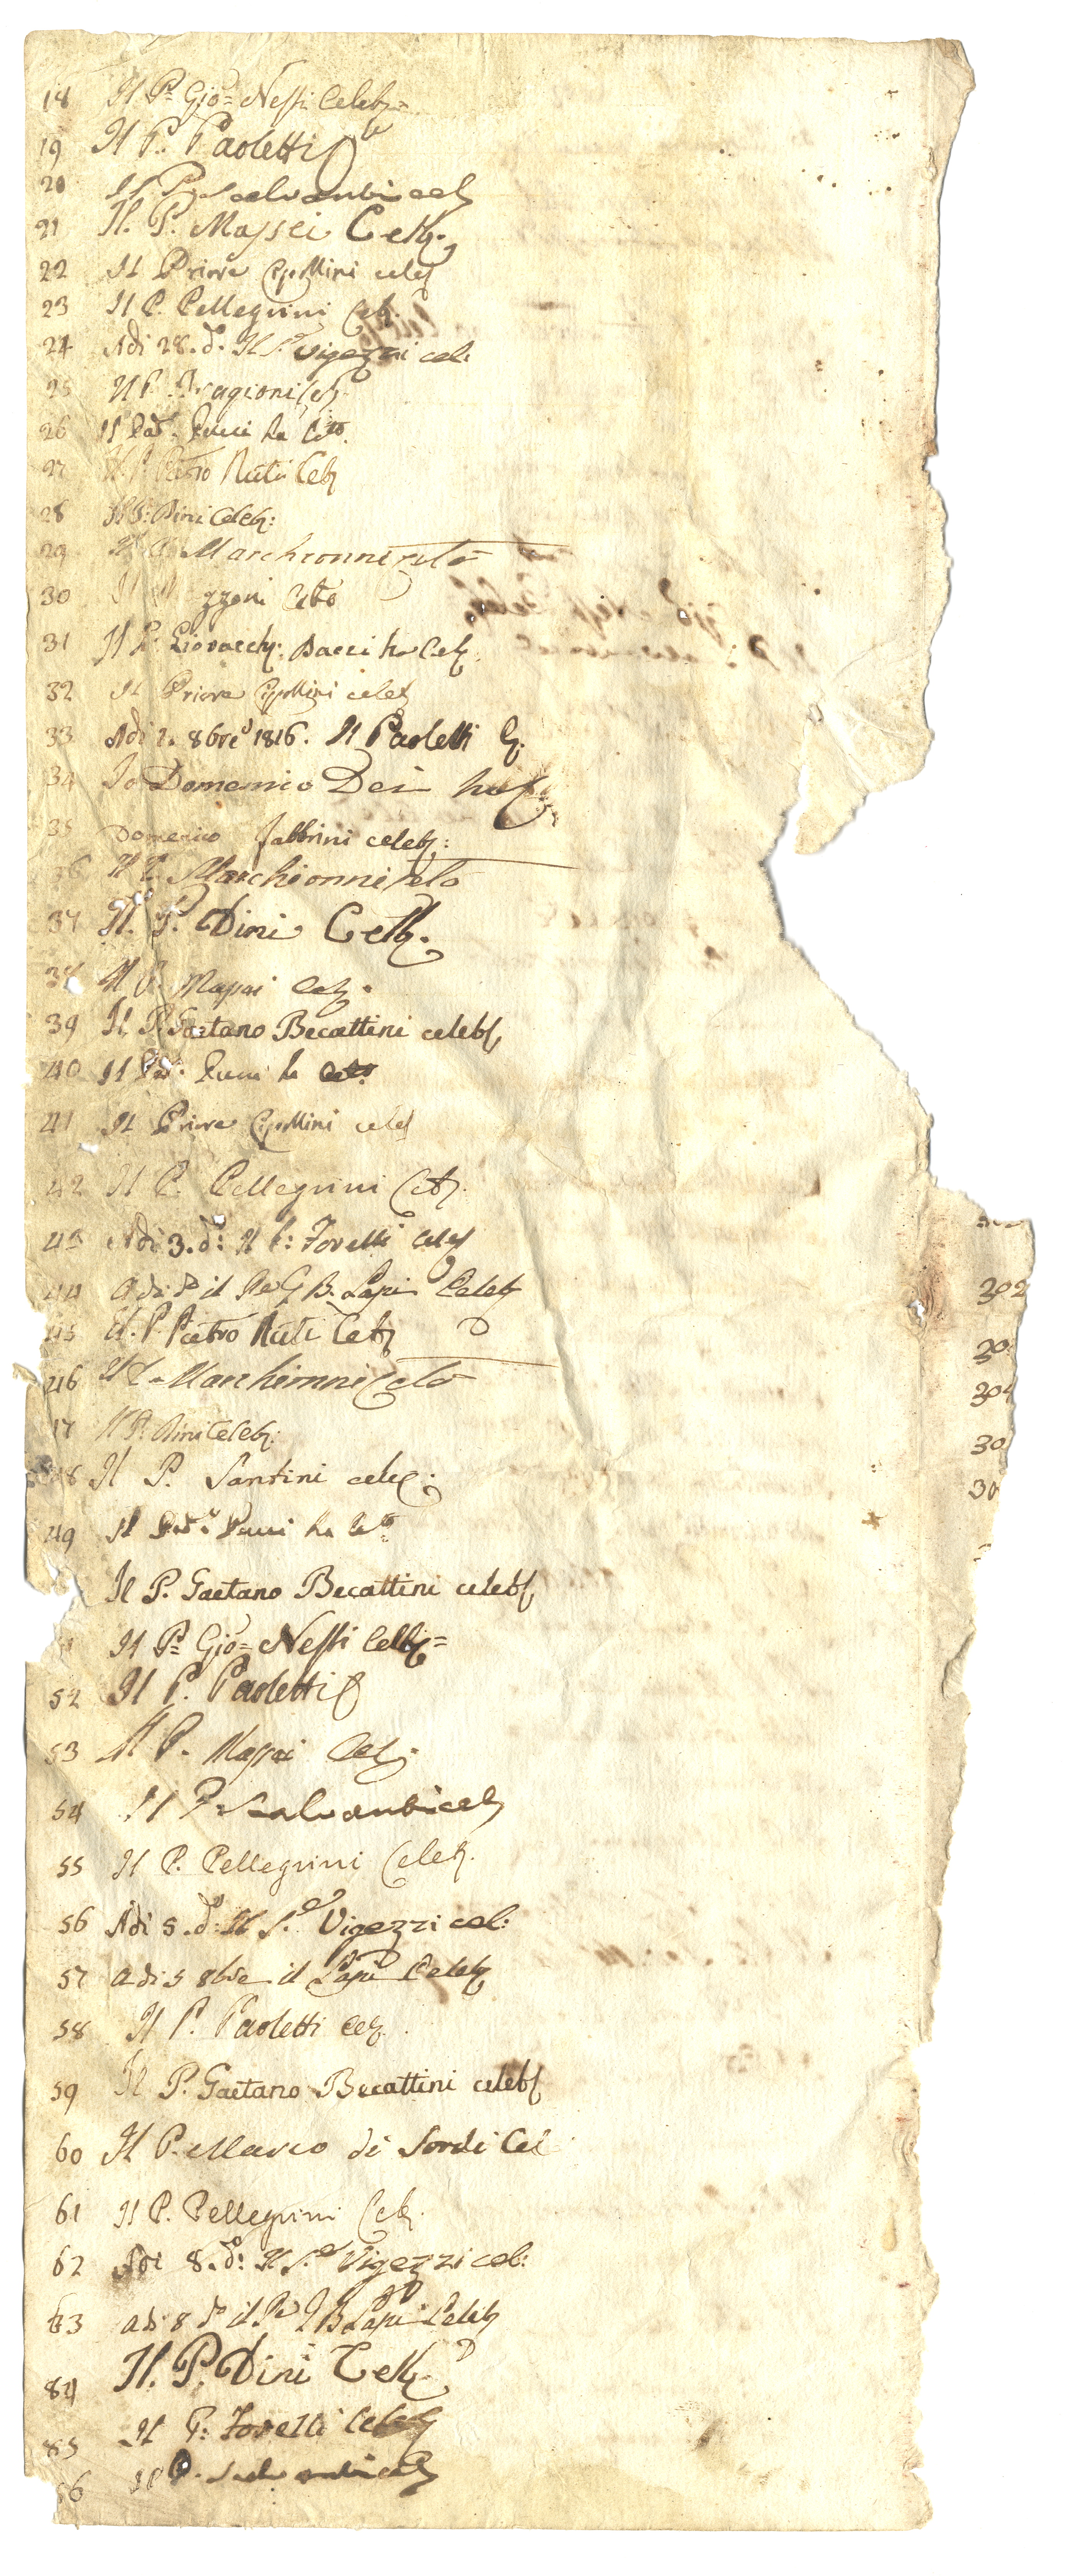 18 Il P. Gio= Nessi Celeb=
19 Il P. Paoletti
20 Il P. Salvanbi cel
21 Il. P. Massei Celb.
22 Il Priore Cipollini celeb
23 Il P. Pellegrini Celb.
24 Adi 28. do. Il S.e Vigezzi cel:
25 Il P. Bragioni Celb
26 Il Pad.e Pucci ha Cto.
27 Il P. Pietro Nuti Celb
28 Il P: Dini Celeb:
29 Il P. Marchionni Celto
30 zzoni Cebto
31 Il P. Giovacch: Bacci ha Celb.
32 Il Priore Cipollini celeb
33 Adi 1. 8bre 1816. Il Paoletti
34 Io Domenico Dei ho
35 Domenico Fabbrini celeb:
36 Il P. Marchionni Celto
37 Il. P. Dini Celb.
38 Il P. Massei Celb.
39 Il P. Gaetano Becattini celeb
40 Il Pad.e Pucci ha
41 Il Priore Cipollini celeb
42 Il P. Pellegrini Celb.
43 Adi 3. do: Il P: Torelli Celeb
44 Adi do il Pe G B. Lapi Celeb
45 Il. P Pietro Nuti Celb
46 Il P. Marchionni Celto
47 Il P: Dini Celeb:
48 Il P. Santini celeb:
49 Il Pad.e Pucci ha Cto.
Il P. Gaetano Becattini celeb
Il P= Gio= Nessi Celb=
52 Il P. Paoletti
53 Il P. Massei Celb.
54 Il P. Salvanbi cel
55 Il P. Pellegrini Celeb.
56 Adi 5. do: Il S.e Vigezzi cel:
57 Adi 5 8bre il Lapi Celeb
58 Il P. Paoletti Celb.
59 Il P. Gaetano Becattini celeb
60 Il P. Marco di Sordi Cel
61 Il P. Pellegrini Celb.
62 Adi 8. do: Il S.e Vigezzi cel:
63 adi 8 do il Pe G B Lapi Celeb
84 Il. P. Dini Celb.
85 Il P: Torelli Celeb
86 Il P. Salvanbi cel
302
304
30
30